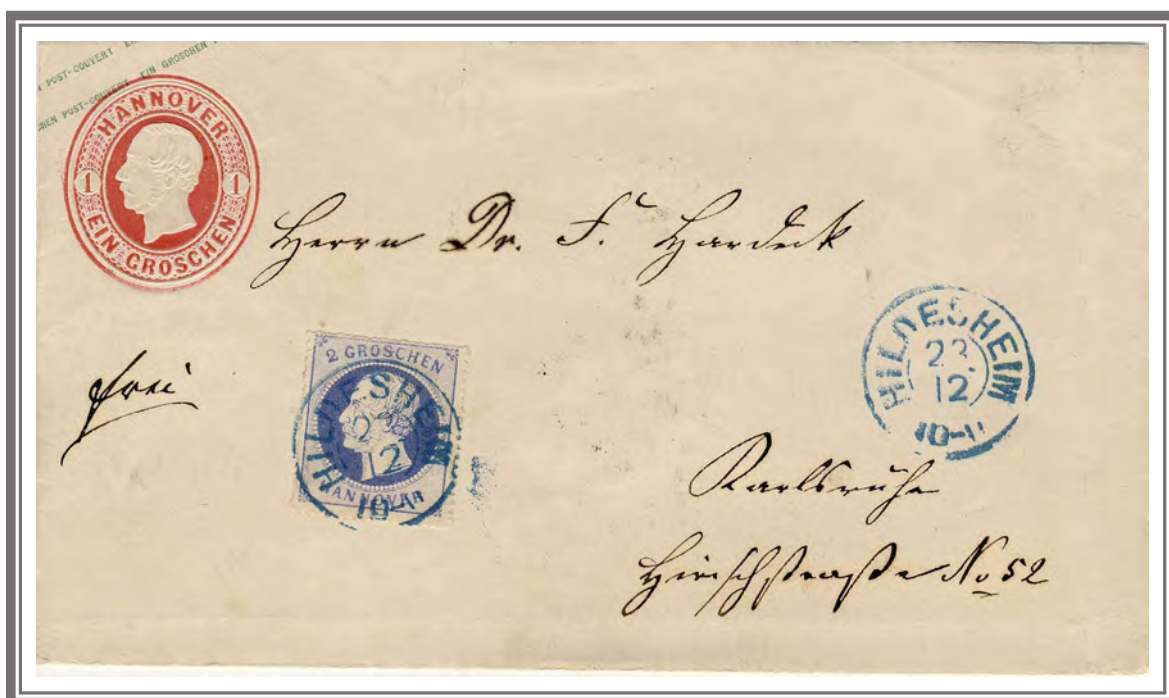 POST-COUVERT
EIN GROSCHEN POST-COUVERT EIN GROSCHEN
POST-COUVERT
HANNOVER
1 1
EIN GROSCHEN
Herrn Dr. F. Hardeck
frei
2 GROSCHEN
HANNOVER
HILDESHEIM
23
12
10-11
HILDESHEIM
23.
12
10-11
Karlsruhe
Hirschstraße No 52